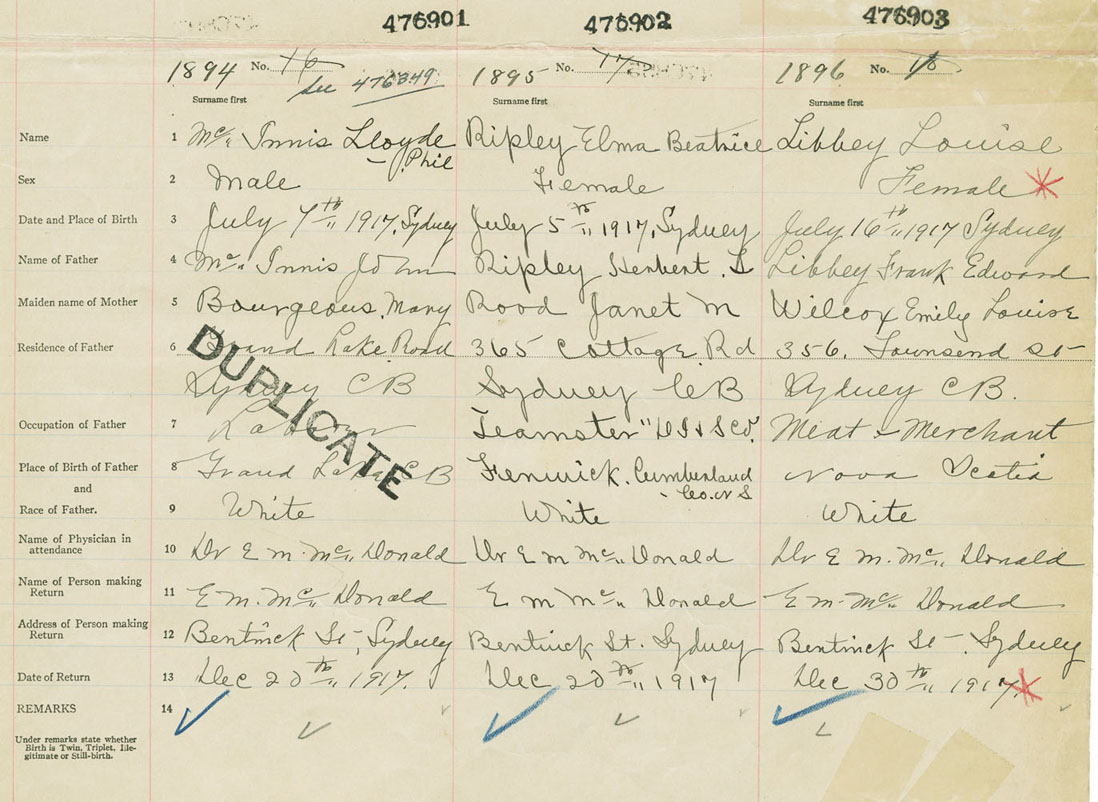 476901 476902 476903
1894 No. 16 1895 No. 17 1896 No. 18
See 476349
Surname first Surname first Surname first
Name 1 Mc Innis Lloyde Ripley Elma Beatrice Libbey Louise
– Phil
Sex 2 Male Female Female
Date and Place of Birth 3 July 7th 1917, Sydney July 5th 1917, Sydney July 16th 1917 Sydney
Name of Father 4 Mc Innis John Ripley Herbert. L Libbey Frank Edward
Maiden name of Mother 5 Bourgeous, Mary Rood Janet M Wilcox Emily Louise
Residence of Father 6 Grand Lake Road 365 Cottage Rd 356. Townsend St
Sydney CB Sydney CB Sydney CB.
DUPLICATE
Occupation of Father 7 Labourer Teamster "D I & S Co". Meat - Merchant
Place of Birth of Father 8 Grand Lake CB Fenwick. Cumberland Nova Scotia
and - Co. N S
Race of Father. 9 White White White
Name of Physician in
attendance 10 Dr E M. Mc Donald Dr E M Mc Donald Dr E M. Mc Donald
Name of Person making
Return 11 E M. Mc Donald E M Mc Donald E M Mc Donald
Address of Person making
Return 12 Bentinck St, Sydney Bentinck St. Sydney Bentinck St. Sydney
Date of Return 13 Dec 20th 1917. Dec 20th 1917 Dec 30th 1917.
REMARKS 14
Under remarks state whether
Birth is Twin, Triplet, Ille-
gitimate or Still-birth.